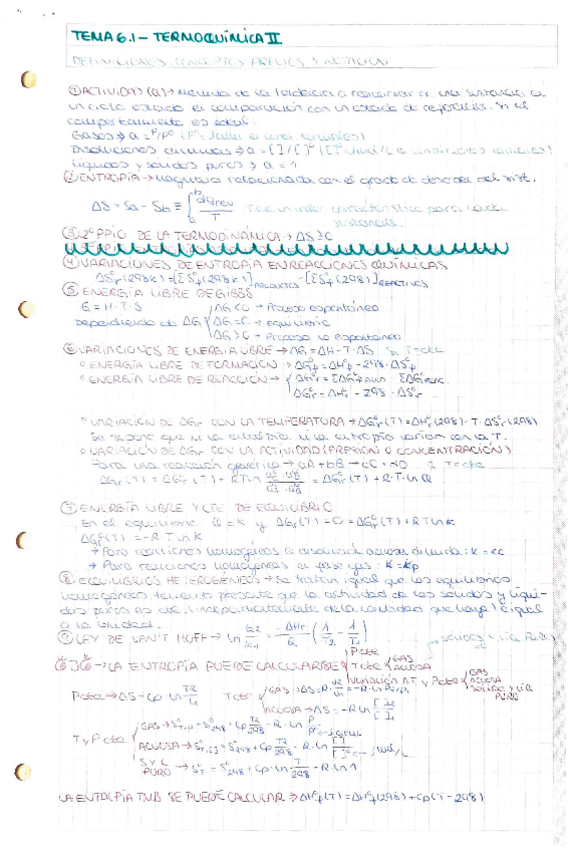 TEMA 6.1 - TERMOQUÍMICA II
DEFINICIONES, CONCEPTOS PREVIOS Y NOTACIÓN
① ACTIVIDAD (a) → Medida de la tendencia a reaccionar de una sustancia en
un cierto estado en comparación con un estado de referencia. Si el
comportamiento es ideal:
Gases → a = P/P°
Disoluciones diluidas → a = [ ]/[ ]°
Líquidos y sólidos puros → a = 1
② ENTROPÍA → Magnitud relacionada con el grado de desorden del sist.
ΔS = Sa - Sb = ∫ dqrev/T
③ 2º PPIO DE LA TERMODINÁMICA → ΔS ≥ 0
④ VARIACIONES DE ENTROPÍA EN REACCIONES QUÍMICAS
ΔS°r (298K) = [Σ S°f (298K)] PRODUCTOS - [Σ S°f (298)] REACTIVOS
⑤ ENERGÍA LIBRE DE GIBBS
G = H - T·S
Dependiendo de ΔG
ΔG < 0 → Proceso espontáneo
ΔG = 0 → Equilibrio
ΔG > 0 → Proceso no espontáneo
⑥ VARIACIONES DE ENERGÍA LIBRE → ΔG = ΔH - T·ΔS si T=cte
○ ENERGÍA LIBRE DE FORMACIÓN → ΔG°f = ΔH°f - 298·ΔS°f
○ ENERGÍA LIBRE DE REACCIÓN → ΔG°r = ΣΔG°f prod - ΣΔG°f reac
ΔG°r = ΔH°r - 298·ΔS°r
○ VARIACIÓN DE ΔGr CON LA TEMPERATURA → ΔG°r (T) = ΔH°r (298) - T·ΔS°r (298)
Se supone que ni la entalpía ni la entropía varían con la T.
○ VARIACIÓN DE ΔGr CON LA ACTIVIDAD (PRESIÓN O CONCENTRACIÓN)
Para una reacción genérica → aA + bB → cC + dD T=cte
ΔGr (T) = ΔG°r (T) + RTln = ΔG°r (T) + R·T·ln Q
⑦ ENERGÍA LIBRE Y CTE DE EQUILIBRIO
En el equilibrio: Q = K y ΔGr (T) = 0 = ΔG°r (T) + RT ln K
ΔG°r (T) = -R T ln K
→ Para reacciones homogéneas en disolución acuosa diluida: K = Kc
→ Para reacciones homogéneas en fase gas: K = Kp
⑧ EQUILIBRIOS HETEROGÉNEOS → Se tratan igual que los equilibrios
homogéneos teniendo presente que la actividad de los sólidos y líqui-
dos puros es cte, independientemente de la cantidad que haya e igual
a la unidad.
⑨ LEY DE VAN'T HOFF → ln K2/K1 = -ΔHr/R (1/T2 - 1/T1)
LA ENTROPÍA PUEDE CALCULARSE
P cte
T cte GAS ACUOSA
VARIACIÓN ΔT y P cte GAS ACUOSA SÓLIDO Y LIQ PURO
P cte → ΔS = Cp·ln T2/T1
T cte
GAS → ΔS = R·
ACUOSA → ΔS = -R ln
T y P cte
GAS → S°298 + Cp T2/298 - R·ln
ACUOSA → S°298 + Cp T2/298 - R·ln
S y L PURO → S°T = S°298 + Cp·ln T/298 - R ln 1
LA ENTALPÍA TMB SE PUEDE CALCULAR → ΔH°f (T) = ΔH°f (298) + Cp (T - 298)